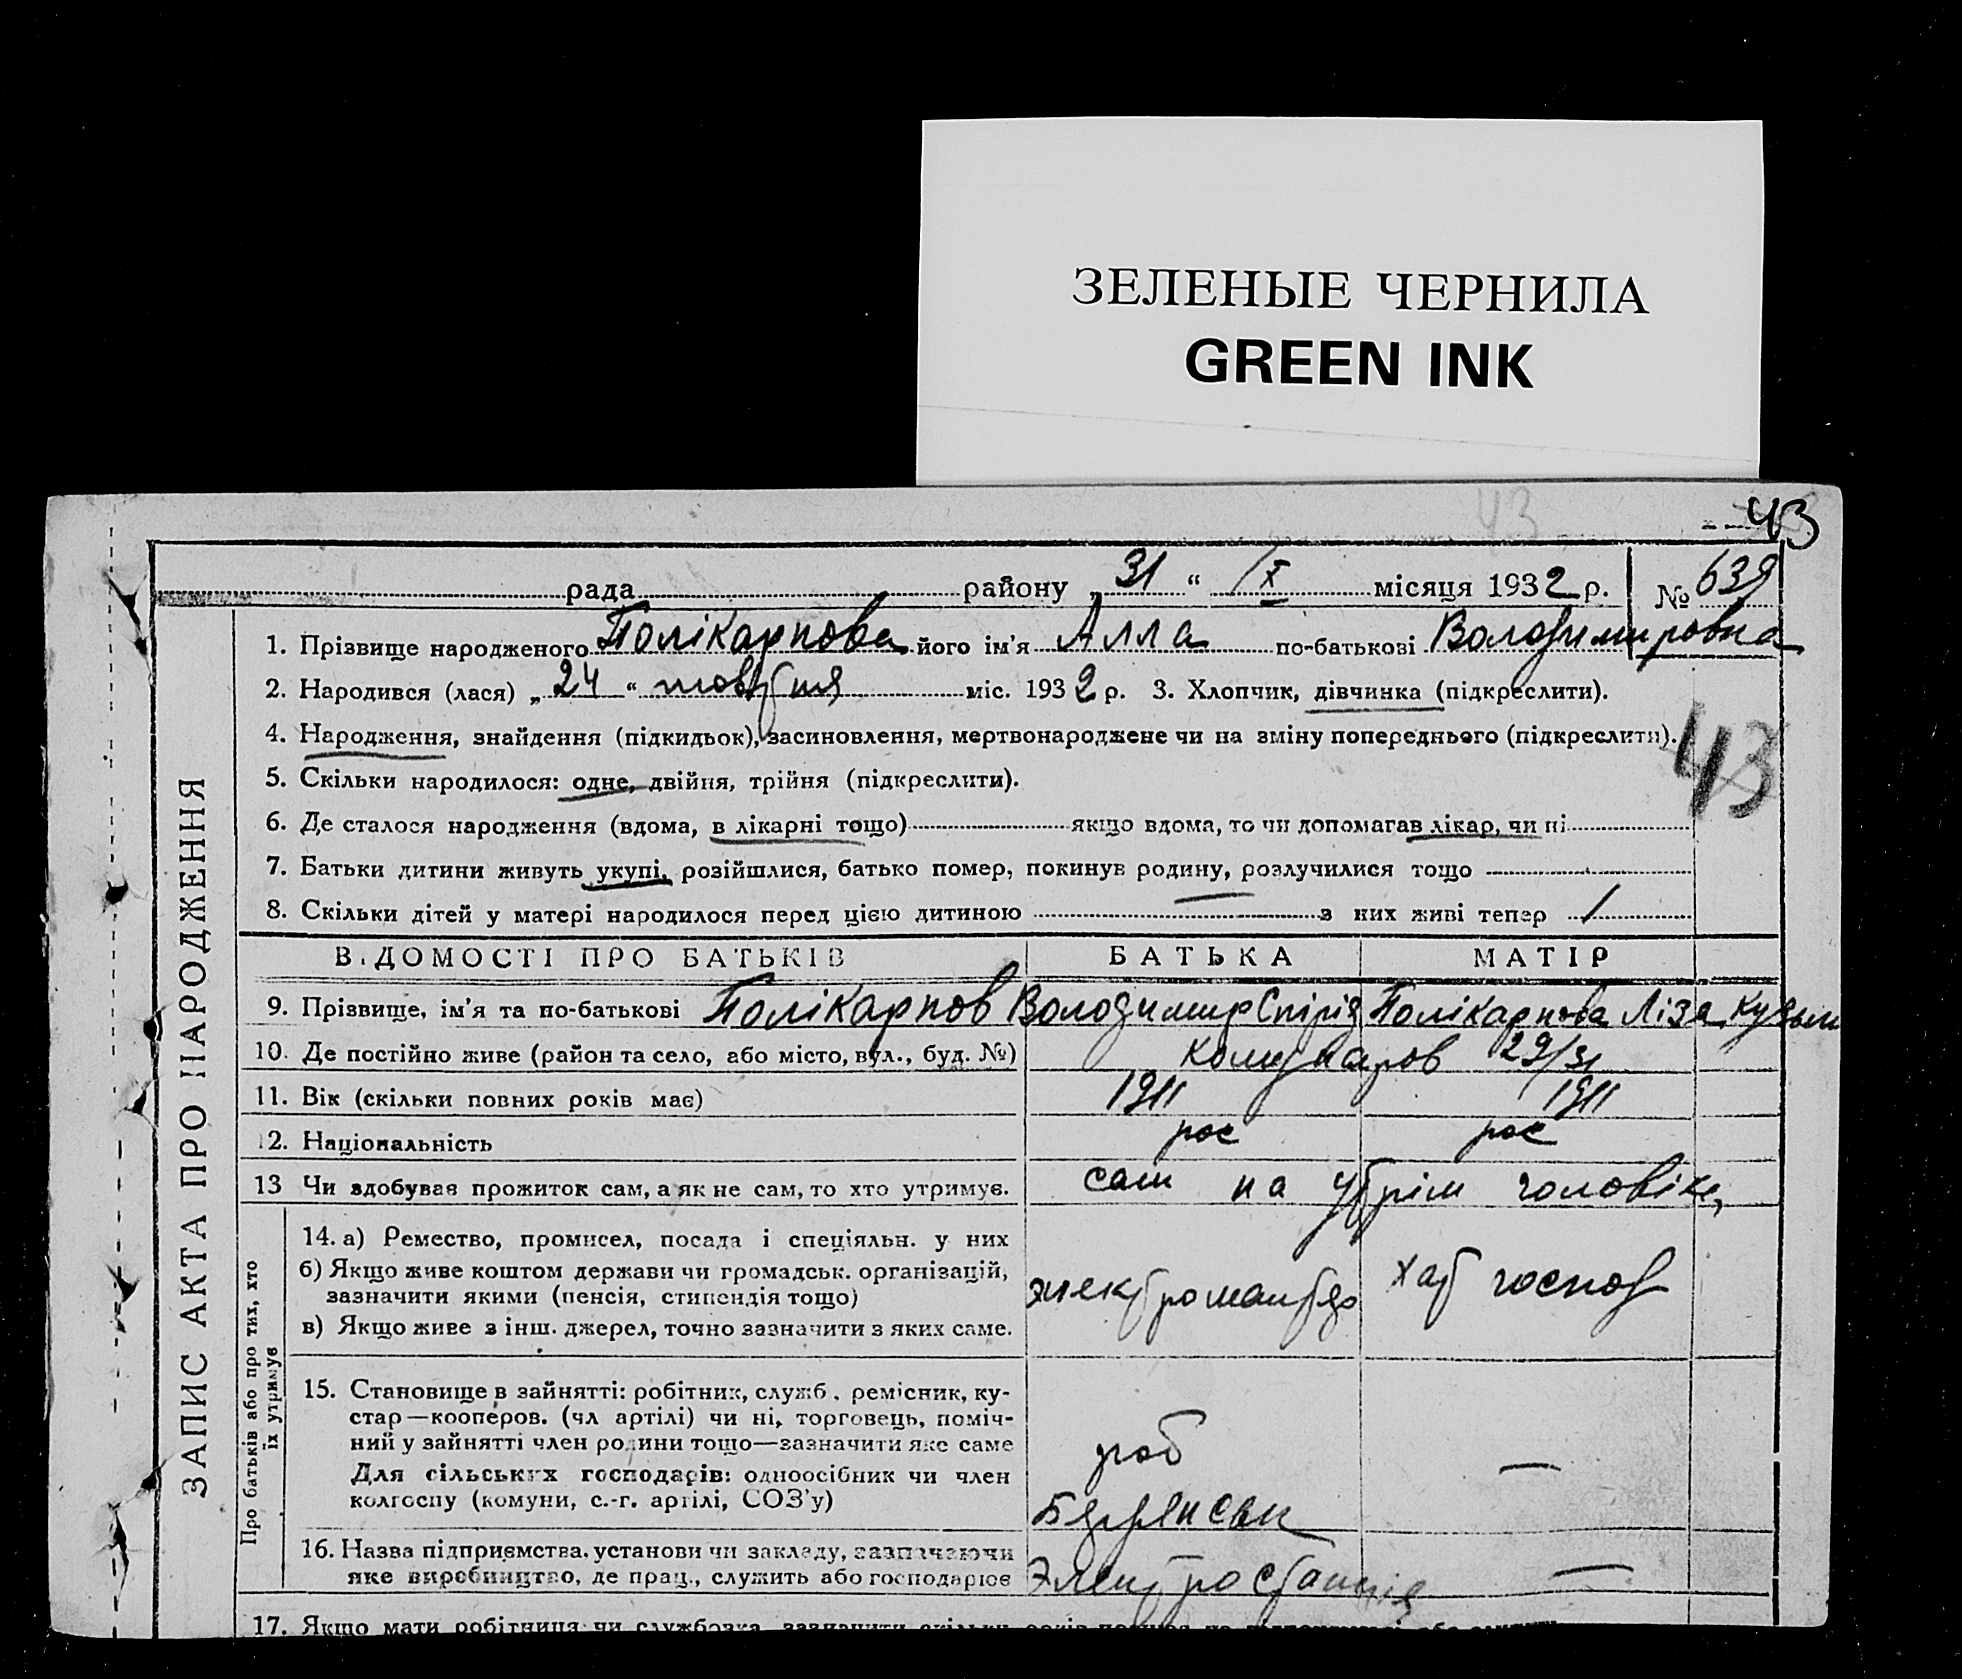 ЗЕЛЕНЫЕ ЧЕРНИЛА
GREEN INK
43
43
рада району „31“ /X місяця 1932 р. № 639
1. Прізвище народженого Полікарпова його ім'я Алла по-батькові Володимировна
2. Народився (лася) „24“ жовтня міс. 1932 р. 3. Хлопчик, дівчинка (підкреслити).
4. Народження, знайдення (підкидьок), засиновлення, мертвонароджене чи на зміну попереднього (підкреслити).
43
5. Скільки народилося: одне, двійня, трійня (підкреслити).
6. Де сталося народження (вдома, в лікарні тощо) якщо вдома, то чи допомагав лікар, чи ні
7. Батьки дитини живуть укупі, розійшлися, батько помер, покинув родину, розлучилися тощо
8. Скільки дітей у матері народилося перед цією дитиною — з них живі тепер 1
ВІДОМОСТІ ПРО БАТЬКІВ БАТЬКА МАТІР
9. Прізвище, ім'я та по-батькові Полікарпов Володимир Спірід Полікарпова Ліза Кузьм
10. Де постійно живе (район та село, або місто, вул., буд. №) Комунаров 29/31
11. Вік (скільки повних років має) 1911 1911
12. Національність рос рос
13 Чи здобував прожиток сам, а як не сам, то хто утримує. сам на утрім чоловіка
14. а) Ремество, промисел, посада і спеціяльн. у них
б) Якщо живе коштом держави чи громадськ. організацій,
зазначити якими (пенсія, стипендія тощо)
в) Якщо живе з інш. джерел, точно зазначити з яких саме.
электромантьор хат господ
15. Становище в зайнятті: робітник, служб., ремісник, ку-
стар—кооперов. (чл артілі) чи ні, торговець, поміч-
ний у зайнятті член родини тощо—зазначити яке саме
Для сільських господарів: одноосібник чи член
колгоспу (комуни, с.-г. артілі, СОЗ'у)
роб —
16. Назва підприємства, установи чи закладу, зазначаючи
яке виробництво, де прац., служить або господарює
Электростанція —
17. Якщо мати робітниця чи службовка, зазначити скільки років
ЗАПИС АКТА ПРО НАРОДЖЕННЯ
Про батьків або про тих, хто
їх утримує